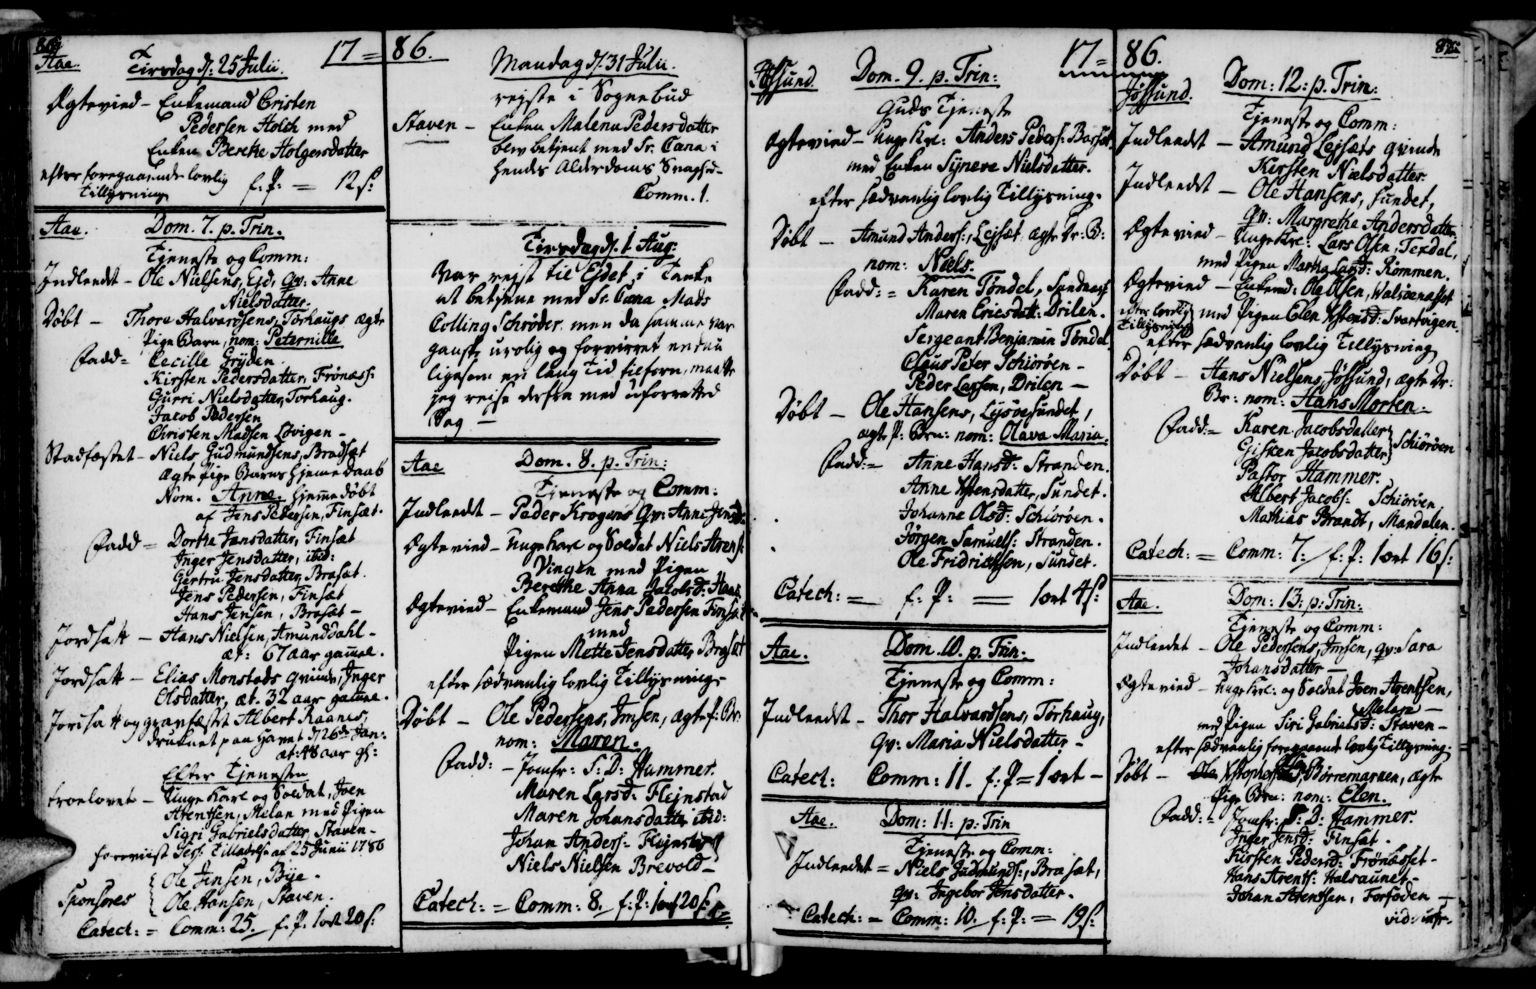 17 = 86.
Aae. Tirsdag d: 25 Julii.
Ægtevied – Enkemand Cristen
Pedersen Holch med
Enken Berethe Holgersdatter
efter foregaaende lovlig
Tillysning f: P: = 12 s:
Aae. Dom. 7. p. Trin.
Tjeneste og Comm:
Indleedt – Ole Nielsens, Ejd, Qv: Anne
Nielsdatter.
Døbt – Thore Halvardsens, Torhaugs ægte
Pige Barn, nom: Peternille
Fadd = Cecille Gryden
Kirsten Pedersdatter, Frønæss:
Gurri Nielsdatter, Torhaug.
Jacob Pedersen
Christen Madsen Løvigen –
Stadfæstet – Niels Gudmundsens, Brasæt
ægte Pige Barns hjemedaab
Nom. Anne. hjemedøbt
af Jens Pedersen, Finsæt.
Fadd = Dorthe Jansdatter, Finsæt
Inger Jensdatter, ibid:
Gertru Jensdatter, Brasæt.
Jens Pedersen, Finsæt
Hans Jensen, Brasæt –
Jordsatt – Hans Nielsen, Amunddahl –
æt: 67 aar gamel.
Jordsatt – Elias Monstads qvinde, Inger
Olsdatter, æt. 32 aar gamel.
Jordsatt og graafæstet Albert Raanes,
druknet paa Havet d: 26de Jan:
æt: 48 aar gl:
Efter Tjenesten
troelovet – Unge Karl og Soldat, Joen
Arentsen, Melan med Pigen
Sigri Gabrielsdatter, Staven –
foreviist Sess: Tilladelse af 25 Junii 1786
Sponsores
Ole Jensen, Bije.
Ole Hansen, Staven.
Catech: = Comm: 25. f. P. 1 ort 20 s:
Mandag d: 31 Julii.
rejste i Sognebud
Staven – Enken Malena Pedersdatter
blev betjent med Sr. Cæna i
hendes Alderdoms
Comm. 1.
Tirsdag d. 1 Aug:
Var rejst til Ejdet, i Tanke
at betjene med Sr. Cæna Mads
Colling Schrøder, men da samme var
ganske urolig og forvirret endnu
ligesom en lang Tid tilforn, maatte
jeg reise derfra med uforrettet
Sag –
Aae Dom. 8. p. Trin:
Tjeneste og Comm:
Indleedt – Peder Krogens Qv: Anne Jensd:
Ægtevied – Unge Karl og Soldat Niels Arens:
Vingen med Pigen
Berethe Anna Jacobsd: Haar
Ægtevied – Enkemand Jens Pedersen Finsæt
med
Pigen Mette Jensdatter Brasæt
efter sædvanlig lovlig Tillysning
Døbt – Ole Pedersens, Imsen, ægte P: Br:
nom: Maren.
Fadd: – Jomfr: S: D: Hammer.
Maren Larsd: Flejnstad
Maren Johansdatter ibid:
Johan Anders: Flejnstad
Niels Nielsen Brevold –
Catech: = Comm: 8. f: P: 1 ort 20 s:
17 = 86.
Jøssund. Dom. 9. p. Trin:
Guds Tjeneste
Ægtevied – Unge Krl: Anders Peders: Barset
med Enken Synere Nielsdatter.
efter sædvanlig lovlig Tillysning.
Døbt – Amund Anders:, Lejsæt ægte Dr: B:
nom: Niels.
Fadd: = Karen Tøndel, Sundnæs
Maren Ericsdatt: Drilen.
Sergeant Benjamin Tøndel
Claus Peter Schiørøen –
Peder Larsen, Drilen –
Døbt – Ole Hansens, Lysøesundet,
ægte P: Brn: nom: Olava Maria.
Fadd: = Anne Hansd: Stranden.
Anne Xstensdatter, Sundet.
Johanne Olsd: Schiørøen.
Jørgen Samuels: Stranden.
Ole Fridrichsen, Sundet.
Catech: = f: P: = 1 ort 4 s:
Aae. Dom. 10. p. Trin:
Tjeneste og Comm:
Indleedt – Thor Halvardsens, Torhaug,
Qv: Maria Nielsdatter –
Catech: Comm: 11. f. P = 1 ort –
Aae. Dom: 11: p: Trin
Tjeneste og Comm:
Indleedt = Niels Gudmunds:, Brasæt,
qv: Ingebor Jensdatter.
Catech: = Comm: 10. f: P: = 19 s:
Jøssund. Dom: 12: p. Trin:
Tjeneste og Comm:
Indleedt – Amund Lejsæts qvinde
Kirsten Nielsdatter.
Indleedt – Ole Hansens, Sundet,
Qv: Margrethe Andersdatter
Ægtevied – Unge Krl: Lars Olsen, Texdal,
med Pigen Martha Larsd: Rømmen.
Ægtevied – Enkemd: Ole Olsen, Walsøenæsset
med Pigen Elen Xstensd: Svartvigen.
efter sædvanlig lovlig Tillysning
Døbt – Hans Nielsens Jøssund, ægte Dr:
Br: nom: Hans Morten.
Fadd: = Karen Jacobsdatter
Gisken Jacobsdatter, Schiørøen
Pastor Hammer.
Albert Jacobs: Schiørøen
Mathias Brandt, Mandalen.
Catech: = Comm: 7. f: P: 1 ort 16 s:
Aae. Dom: 13: p: Trin.
Tjeneste og Comm:
Indleedt – Ole Pedersens, Imsen, qv: Sara
Johansdatter –
Ægtevied – Unge Krl: og Soldat Joen Arentsen,
Melan –
med Pigen Siri Gabrielsd: Staven –
efter sædvanlig foregaaende lovlig Tillysning.
Døbt – Børremarken, ægte
Pige Brn: nom: Elen.
Fadd: = Jomfr: S: D: Hammer.
Inger Jensd: Finsæt.
Kirsten Pedersd: Frønesset –
Hans Arents: Halsaunet –
Johan Arentsen, Forfoden –
vid: infr –